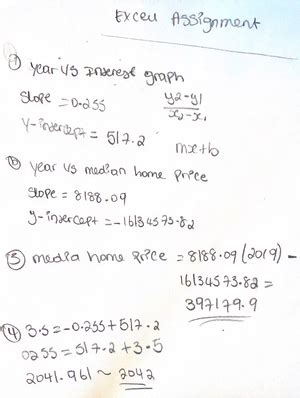 Excel Assignment
① year vs Interest graph
Slope = 0.255 y2-y1
Y-intercept = 517.2 x2-x1
mx+b
② year vs median home price
Slope = 8188.09
y-intercept = -16134573.82
③ media home price = 8188.09 (2019) -
16134573.82 =
397179.9
④ 3.5 = -0.255 + 517.2
0255 = 517.2 + 3.5
2041.961 ~ 2042